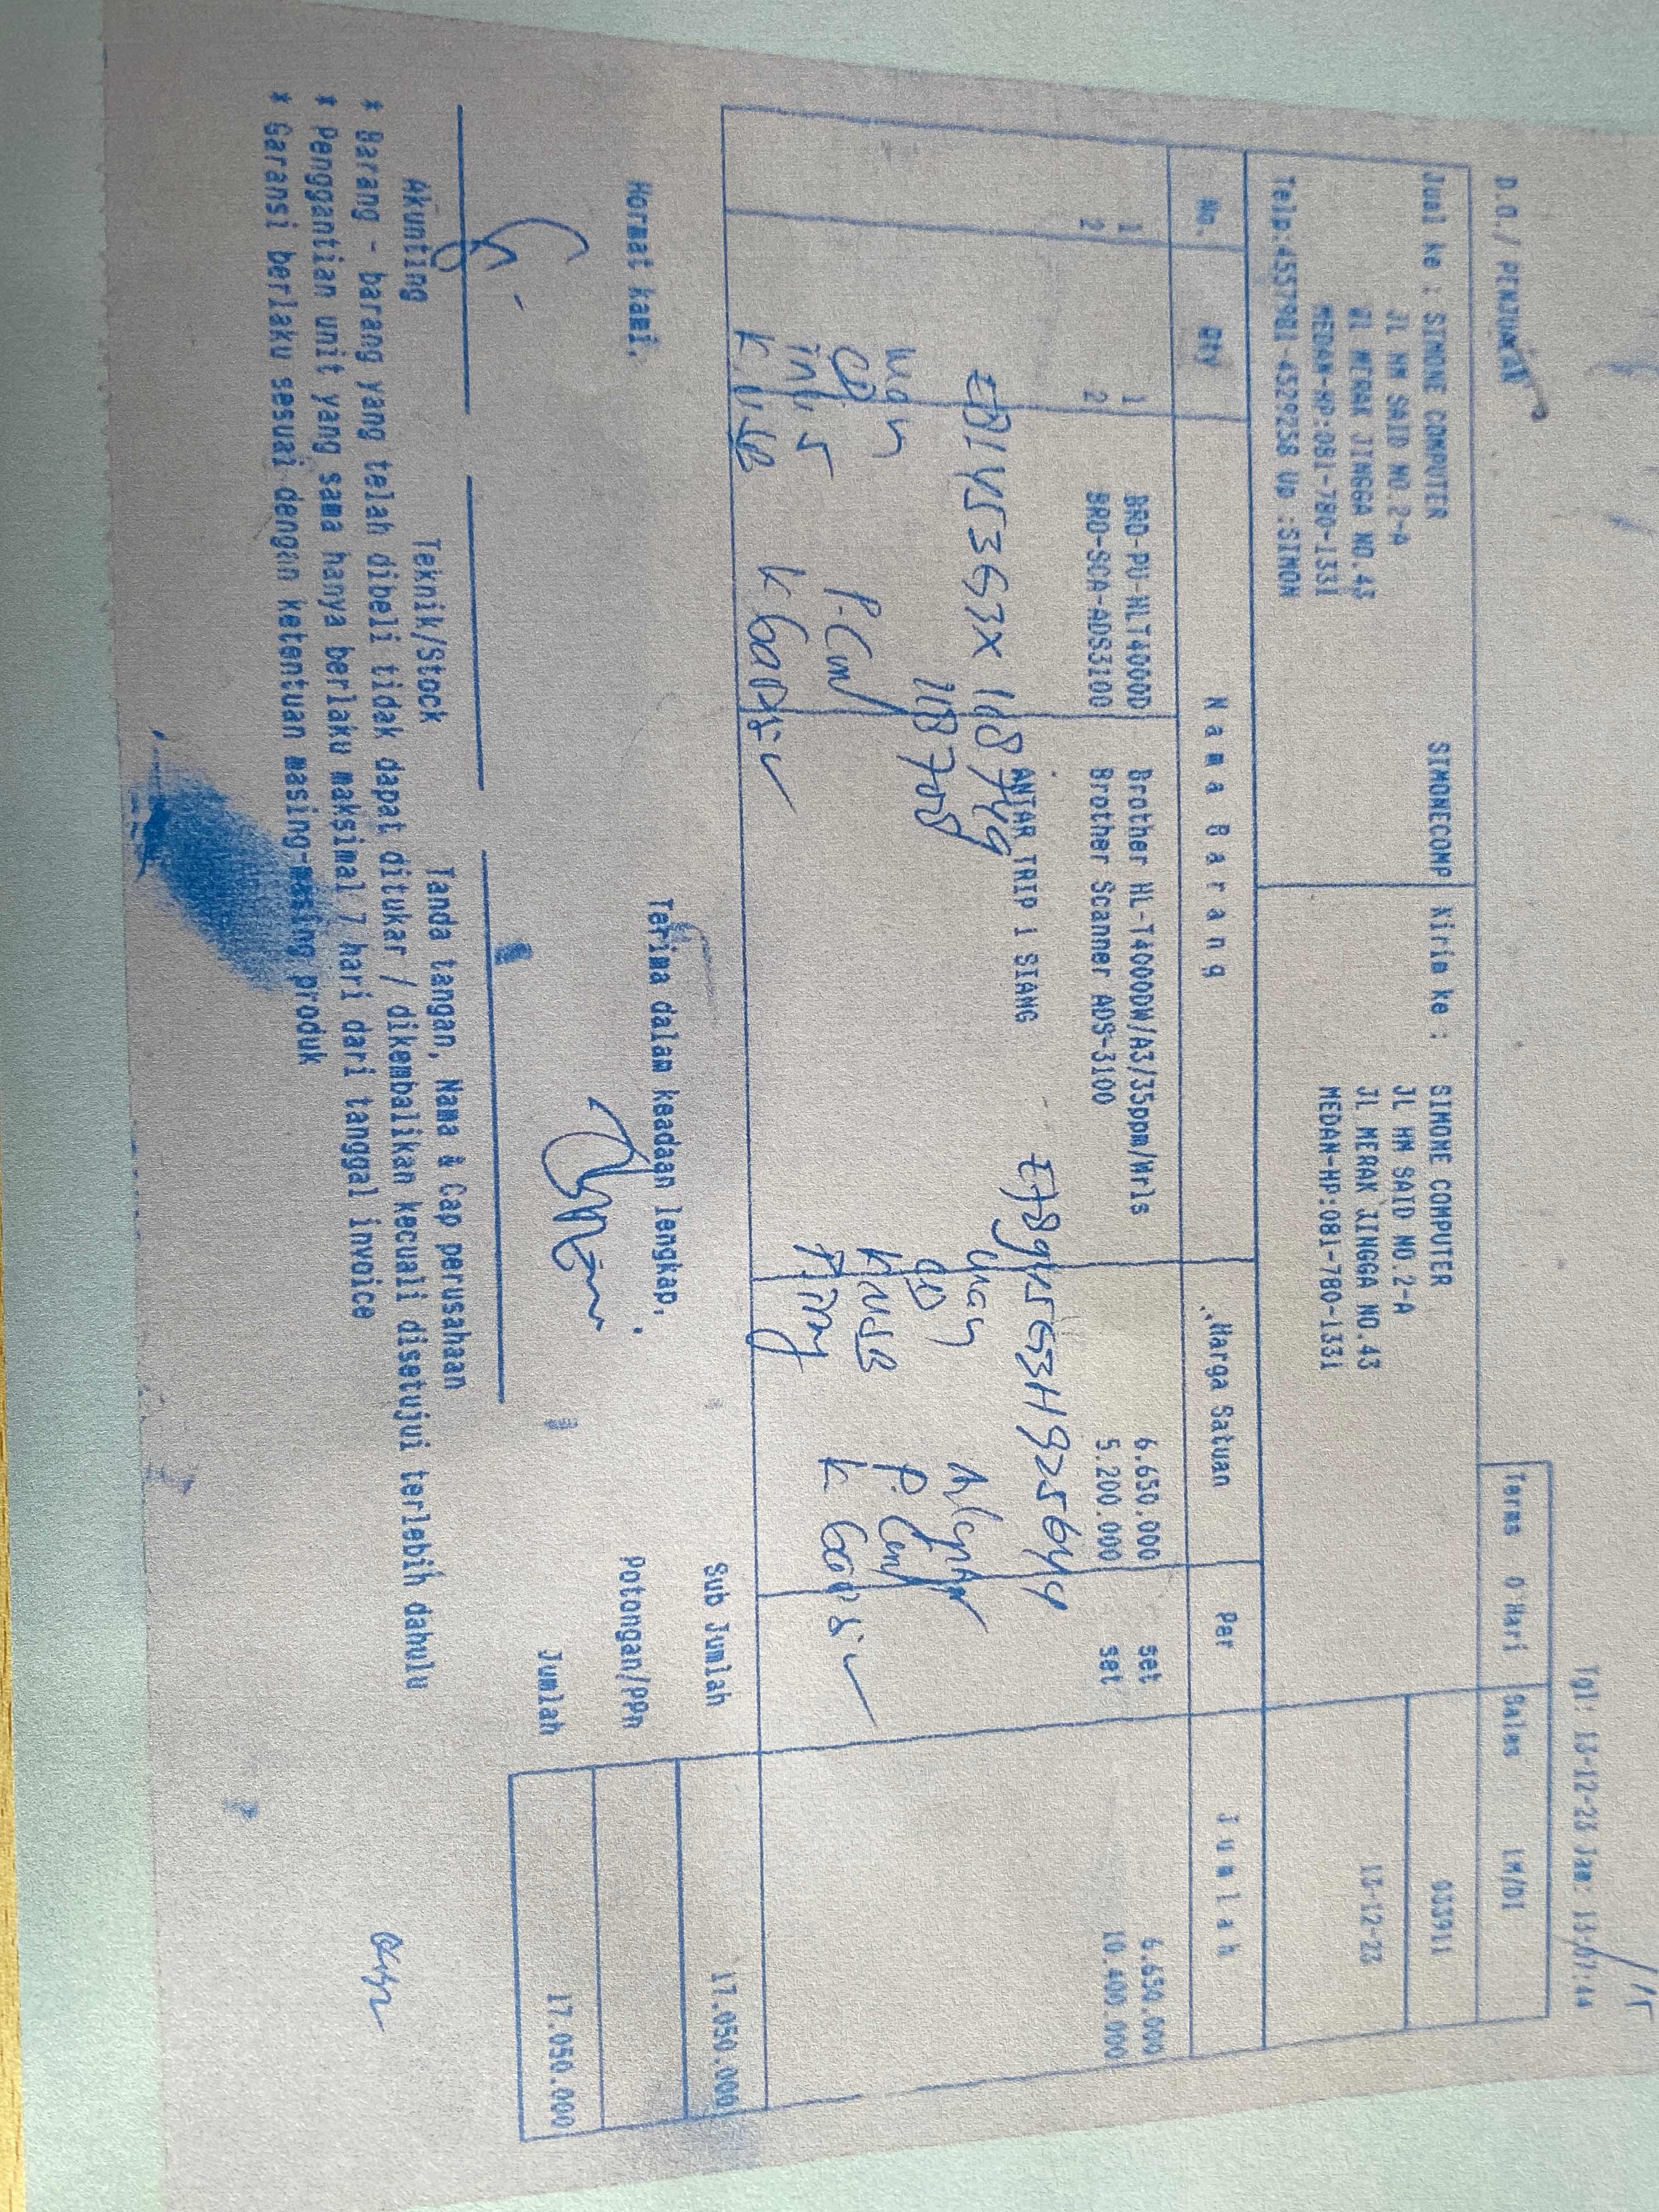 Tgl: 13-12-23 Jam: 13:07:44
D.O./ PENJUALAN
Terms 0 Hari Sales LM/DI
Jual ke : SIMONE COMPUTER SIMONECOMP Kirim ke : SIMONE COMPUTER 033911
JL HM SAID NO.2-A JL HM SAID NO.2-A
JL MERAK JINGGA NO.43 JL MERAK JINGGA NO.43 13-12-23
MEDAN-HP:081-780-1331 MEDAN-HP:081-780-1331
Telp:4557981-4529258 Up :SIMON
No. Qty Nama Barang Harga Satuan Per Jumlah
1 1 BRO-PU-HLT4000D Brother HL-T4000DW/A3/35ppm/Wrls 6.650.000 set 6.650.000
2 2 BRO-SCA-ADS3100 Brother Scanner ADS-3100 5.200.000 set 10.400.000
ANTAR TRIP 1 SIANG
CD
K USB
K Garansi
Sub Jumlah 17.050.000
Hormat kami, Terima dalam keadaan lengkap,
Potongan/PPn
Jumlah 17.050.000
Akunting Teknik/Stock Tanda tangan, Nama & Cap perusahaan
* Barang - barang yang telah dibeli tidak dapat ditukar / dikembalikan kecuali disetujui terlebih dahulu
* Penggantian unit yang sama hanya berlaku maksimal 7 hari dari tanggal invoice
* Garansi berlaku sesuai dengan ketentuan masing-masing produk